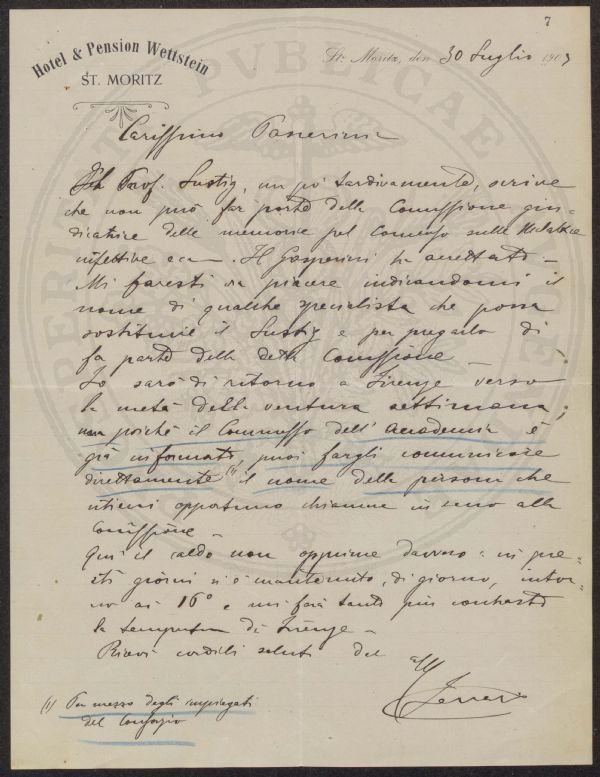 7
Hotel & Pension Wettstein
ST. MORITZ
St. Moritz, den 30 Luglio 1903
Carissimo
Il Prof. Lustig, un pò tardivamente, scrive
che non può far parte della Commissione giu-
dicatrice delle memorie pel Concorso sulle Malattie
infettive ecc—. Il Gasperini ha accettato—
Mi faresti un piacere indicandomi il
nome di qualche specialista che possa
sostituire il Lustig e per pregarlo di
fa parte della detta Commissione—
Io sarò di ritorno a Firenze verso
la metà della ventura settimana;
ma poichè il Commesso dell'Accademia è
già informato, puoi fargli comunicare
direttamente (1) il nome della persona che
ritieni opportuno chiamare in seno alla
Commissione—
Qui il caldo non opprime davvero: in que-
sti giorni si è mantenuto, di giorno, intor-
no ai 16° e mi farà tanto più contrasto
la temperatura di Firenze—
Ricevi cordiali saluti del
(1) Per mezzo degli impiegati
del
PUBLICAE